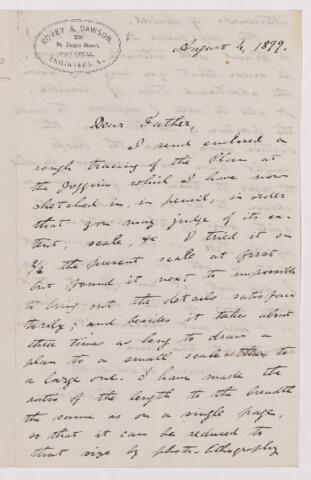 BOVEY & DAWSON,
St. James Street,
MONTREAL.
ENGINEERS, &c.
August 4, 1879.
Dear Father,
I send enclosed a
rough tracing of the Plan at
the Joggins which I have now
sketched in, in pencil, in order
that you may judge of its ex-
tent, scale, &c. I tried it on
the present scale at first
but found it next to impossible
to bring out the details satisfac
torily; and besides it takes about
three times as long to draw a
plan to a small scale to
a large one. I have made the
ratio of the length to the breadth
the same as on a single page,
so that it can be reduced to
that size by photo-lithography